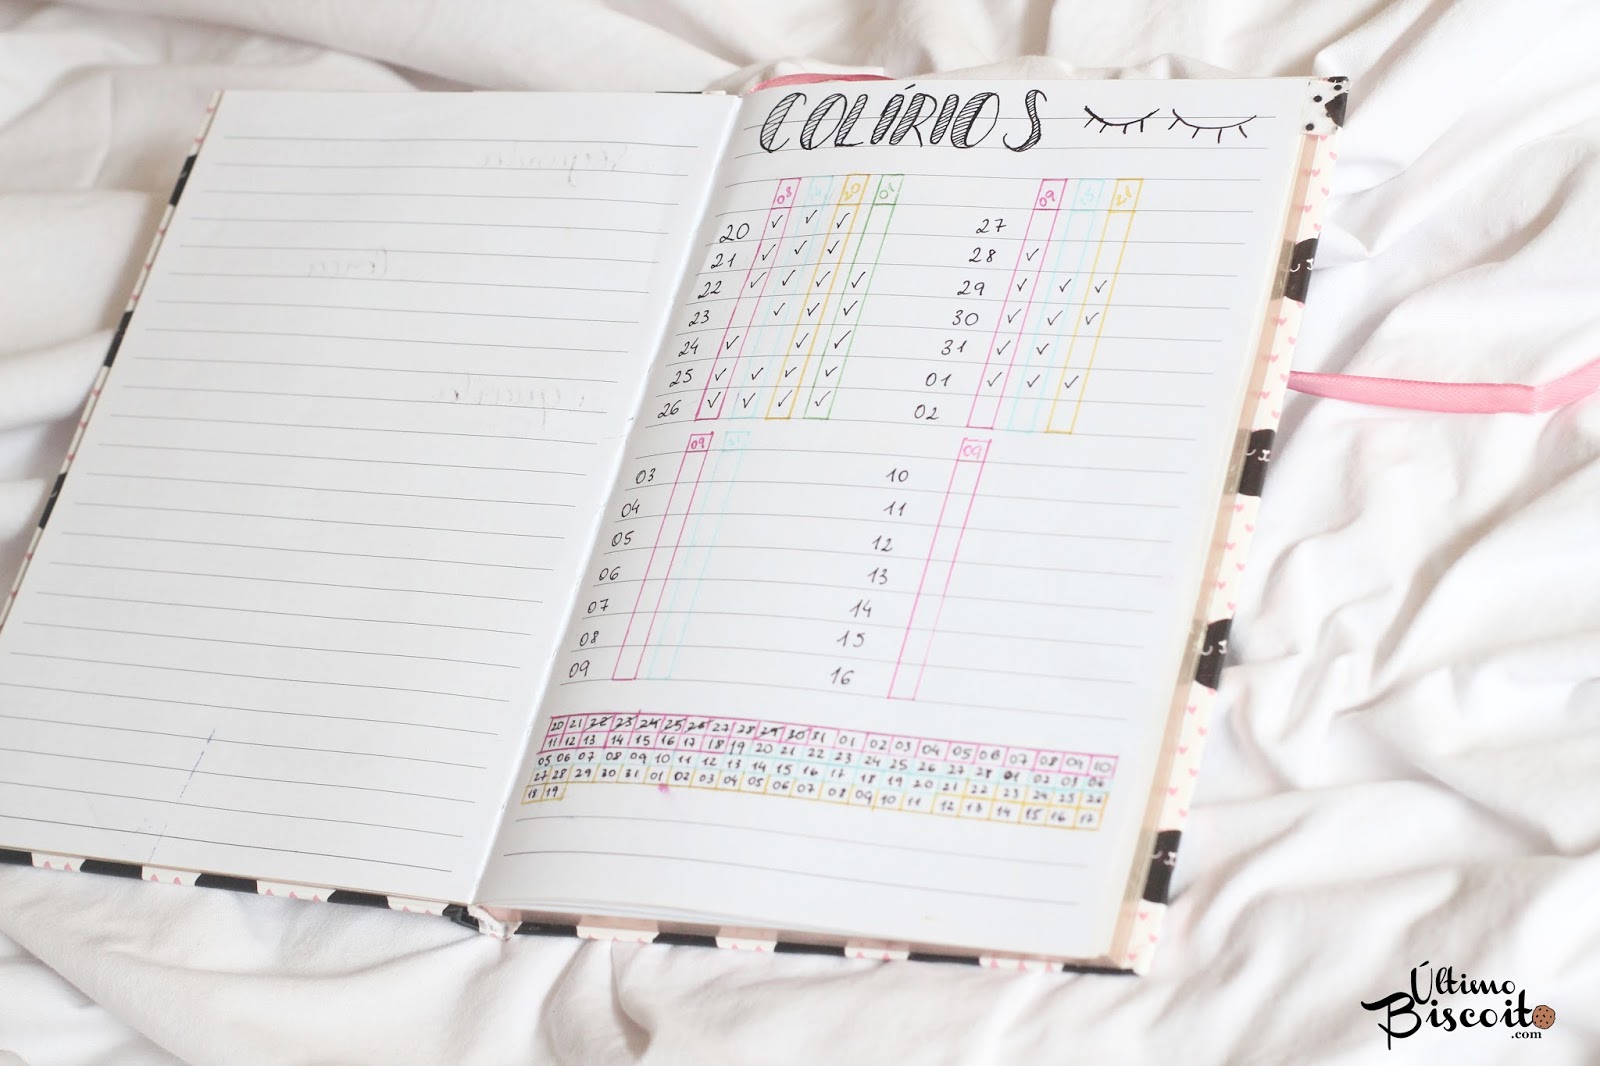 COLÍRIOS
08 14 20 01
20 ✓ ✓ ✓
21 ✓ ✓ ✓
22 ✓ ✓ ✓ ✓
23 ✓ ✓ ✓
24 ✓ ✓ ✓
25 ✓ ✓ ✓ ✓
26 ✓ ✓ ✓ ✓
09
27
28 ✓
29 ✓ ✓ ✓
30 ✓ ✓ ✓
31 ✓ ✓
01 ✓ ✓ ✓
02
09
03
04
05
06
07
08
09
09
10
11
12
13
14
15
16
20 21 22 23 24 25 26 27 28 29 30 31 01 02 03 04 05 06 07 08 09 10
11 12 13 14 15 16 17 18 19 20 21 22 23 24 25 26 27 28 01 02 03 04
05 06 07 08 09 10 11 12 13 14 15 16 17 18 19 20 21 22 23 24 25 26
27 28 29 30 31 01 02 03 04 05 06 07 08 09 10 11 12 13 14 15 16 17
18 19
Último
Biscoito
.com